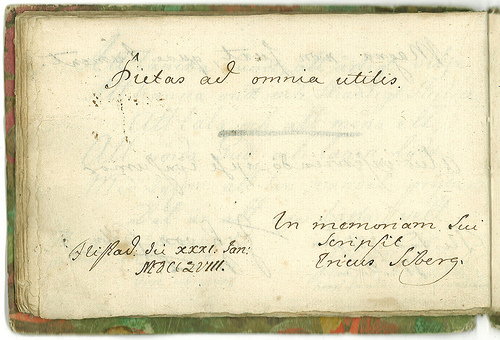 Pietas ad omnia utilis.
In memoriam Sui
Scripsit
Ericus Schberg.
die XXXI. Jan:
MDCCLVIII.